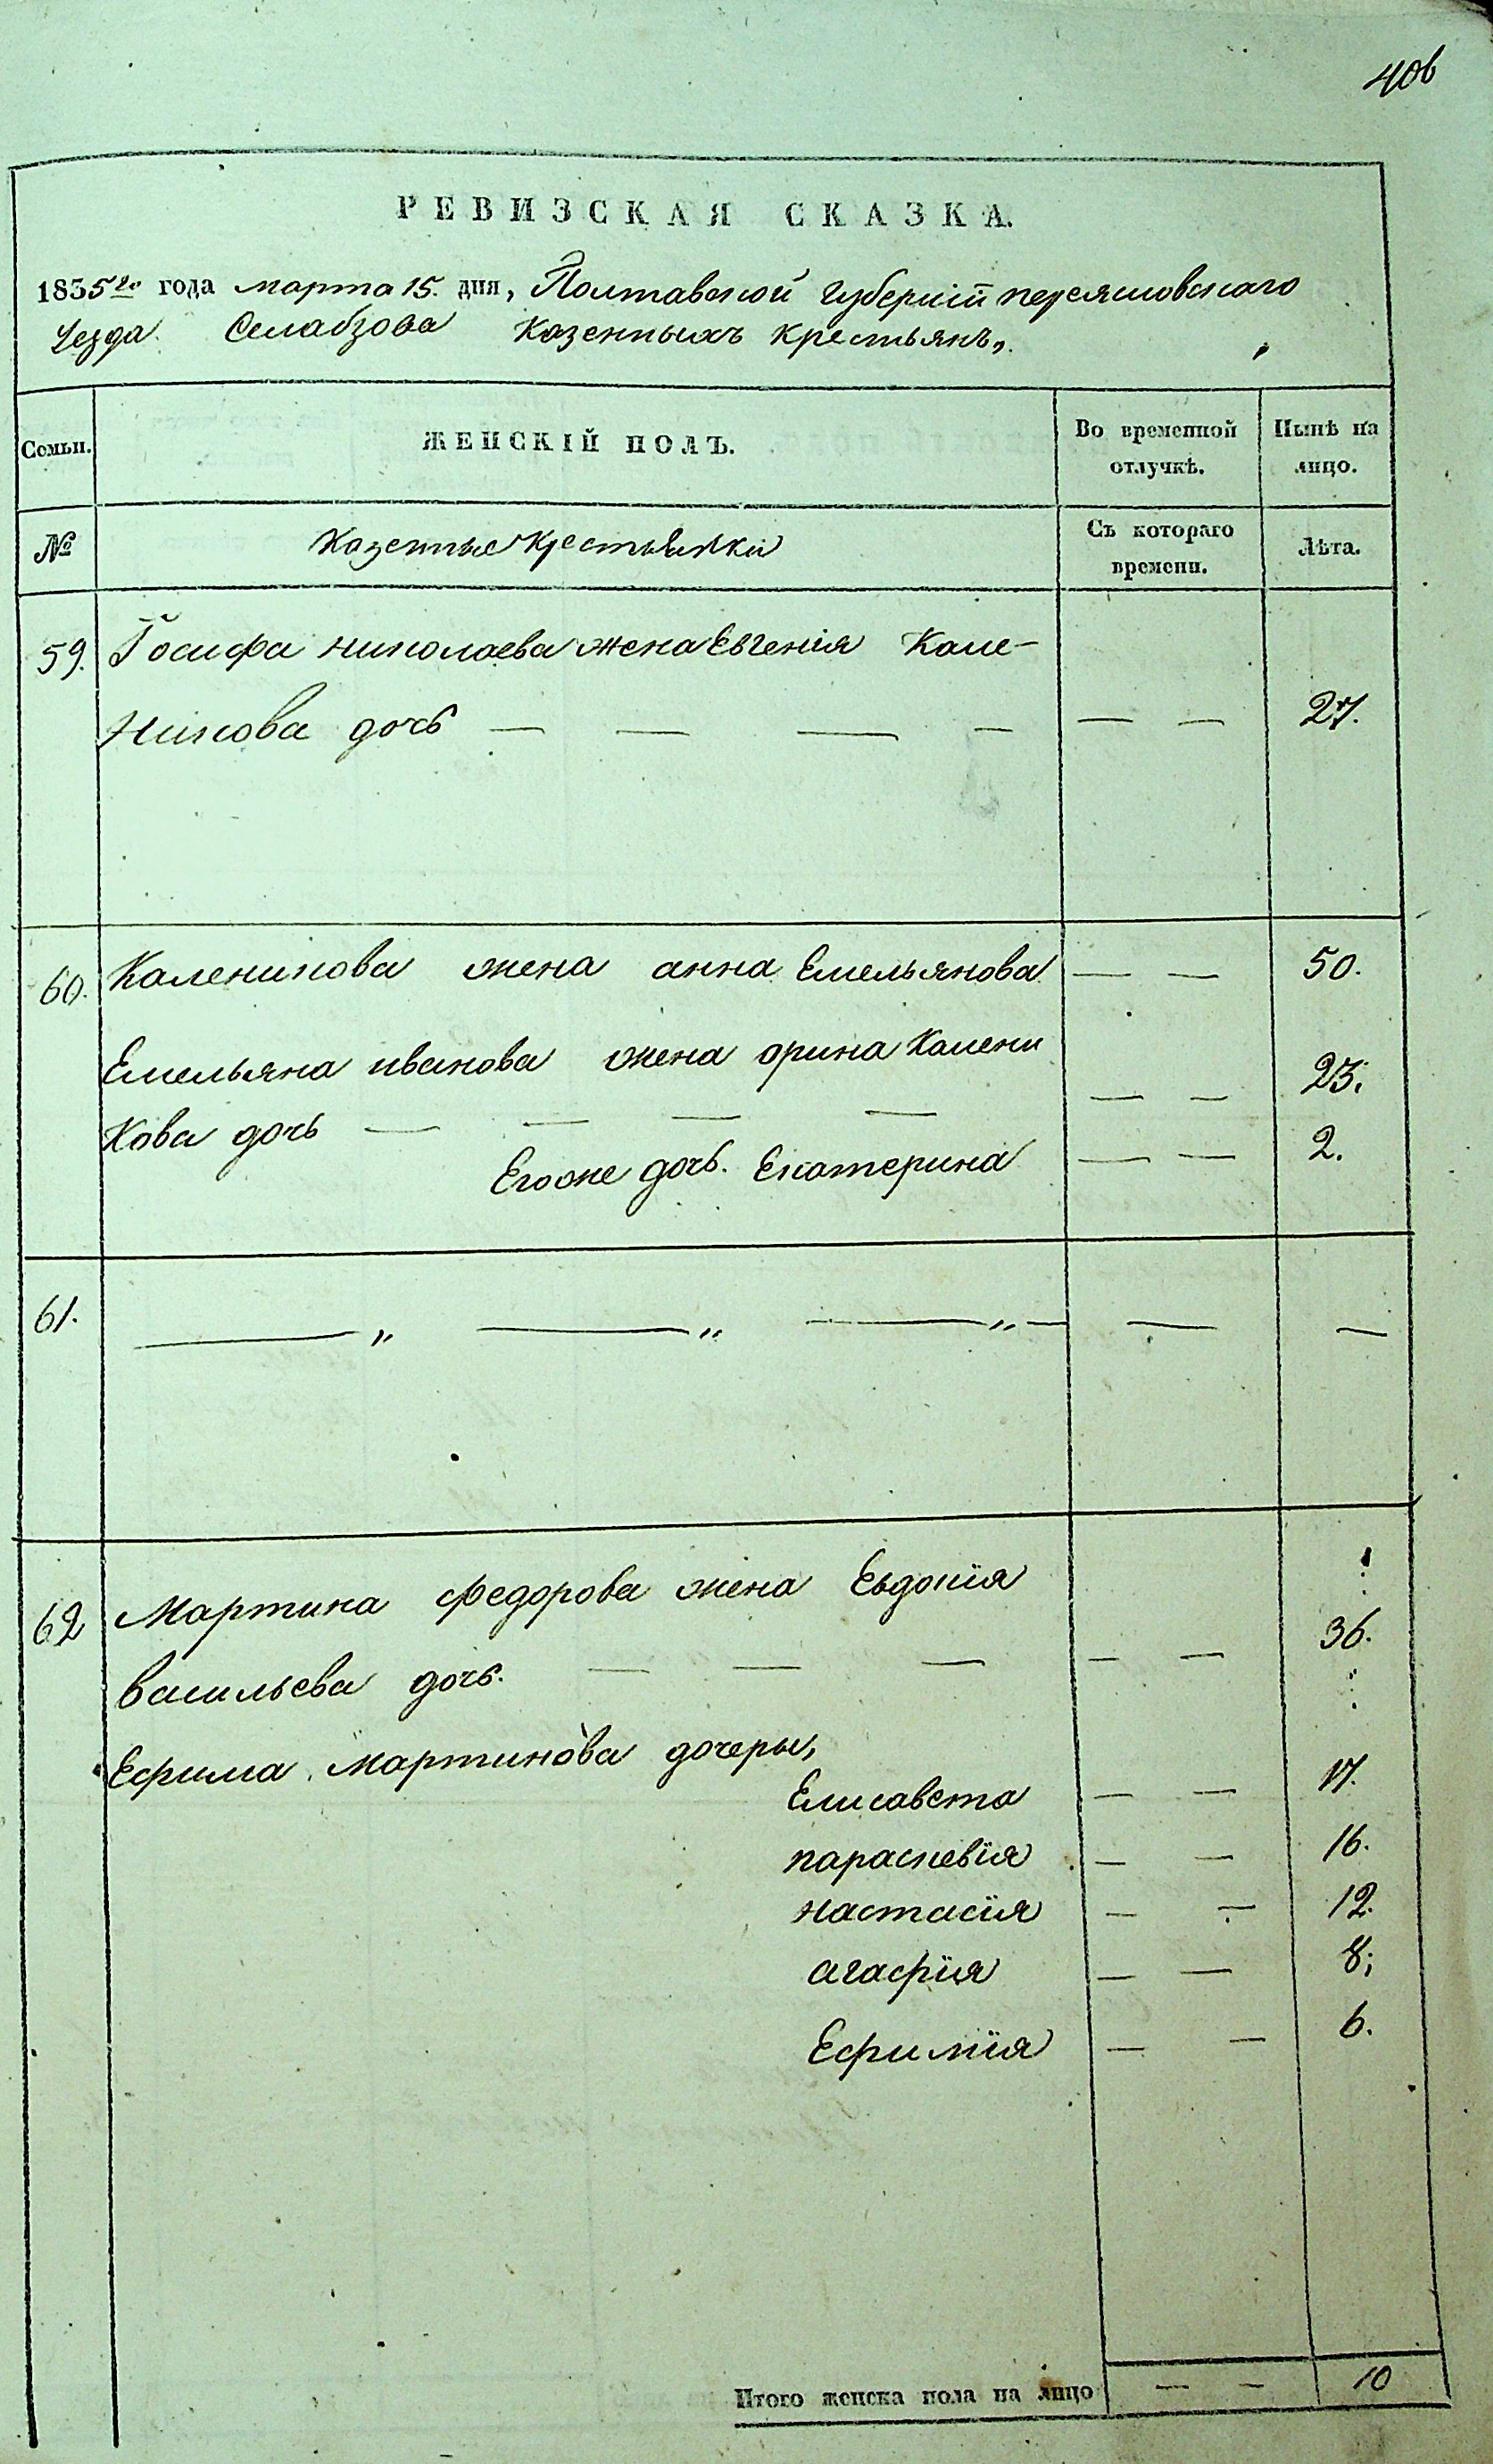 406
РЕВИЗСКАЯ СКАЗКА.
1835го года марта 15. дня, Полтавской губерніи переясловскаго
уезда. Села Бзова Казенныхъ крестьянъ,,
Семьи. ЖЕНСКІЙ ПОЛЪ. Во временной отлучкѣ. Нынѣ на лицо.
№ Казенные крестьянки Съ котораго времени. Лѣта.
59. Іосифа николаева жена Евгенія Кале-
никова дочь — — — — — — 27.
60. Каленикова жена анна Емельянова — — 50.
Емельяна иванова жена орина Калени
кова дочь — — — — — — 23.
Егоже дочь. Екатерина — — 2.
61. — „ — „ — „ — — —
62 Мартина федорова жена Евдокія
васильева дочь. — — — — — 36.
Ефима Мартинова дочеры,
Елисавета — — 17.
параскевія — — 16.
настасія — — 12.
агафія — — 8;
Ефимія — — 6.
Итого женска пола на лицо — — 10